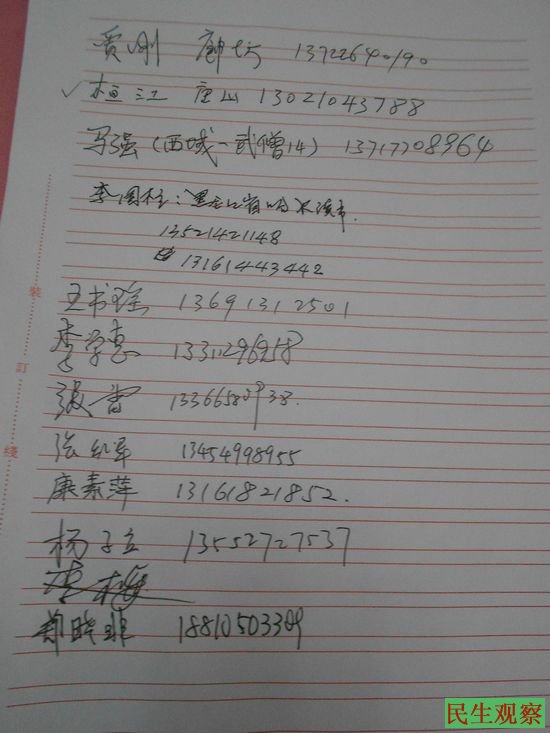 贾刚 廊坊 13722640190
✓桓江 唐山 13021043788
马强(西城一武僧14) 13717708964
李国柱:黑龙江省哈尔滨市.
13521421148
13161443442
王书瑶 13691312501
李学惠 13311296958
张雷 13366580938.
张红军 13454998955
康素萍 13161821852.
杨子立 13552727537
郭晓非 18810503309
裝
訂
綫
民生观察